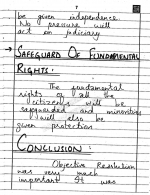 be given independence.
No pressure will
act on judiciary
→ SAFEGUARD OF FUNDAMENTAL
RIGHTS:
The fundamental
rights of all the
citizens will be
safeguarded and minorities
will also be
given protection.
CONCLUSION:
Objective Resolution
was very much
important. It was